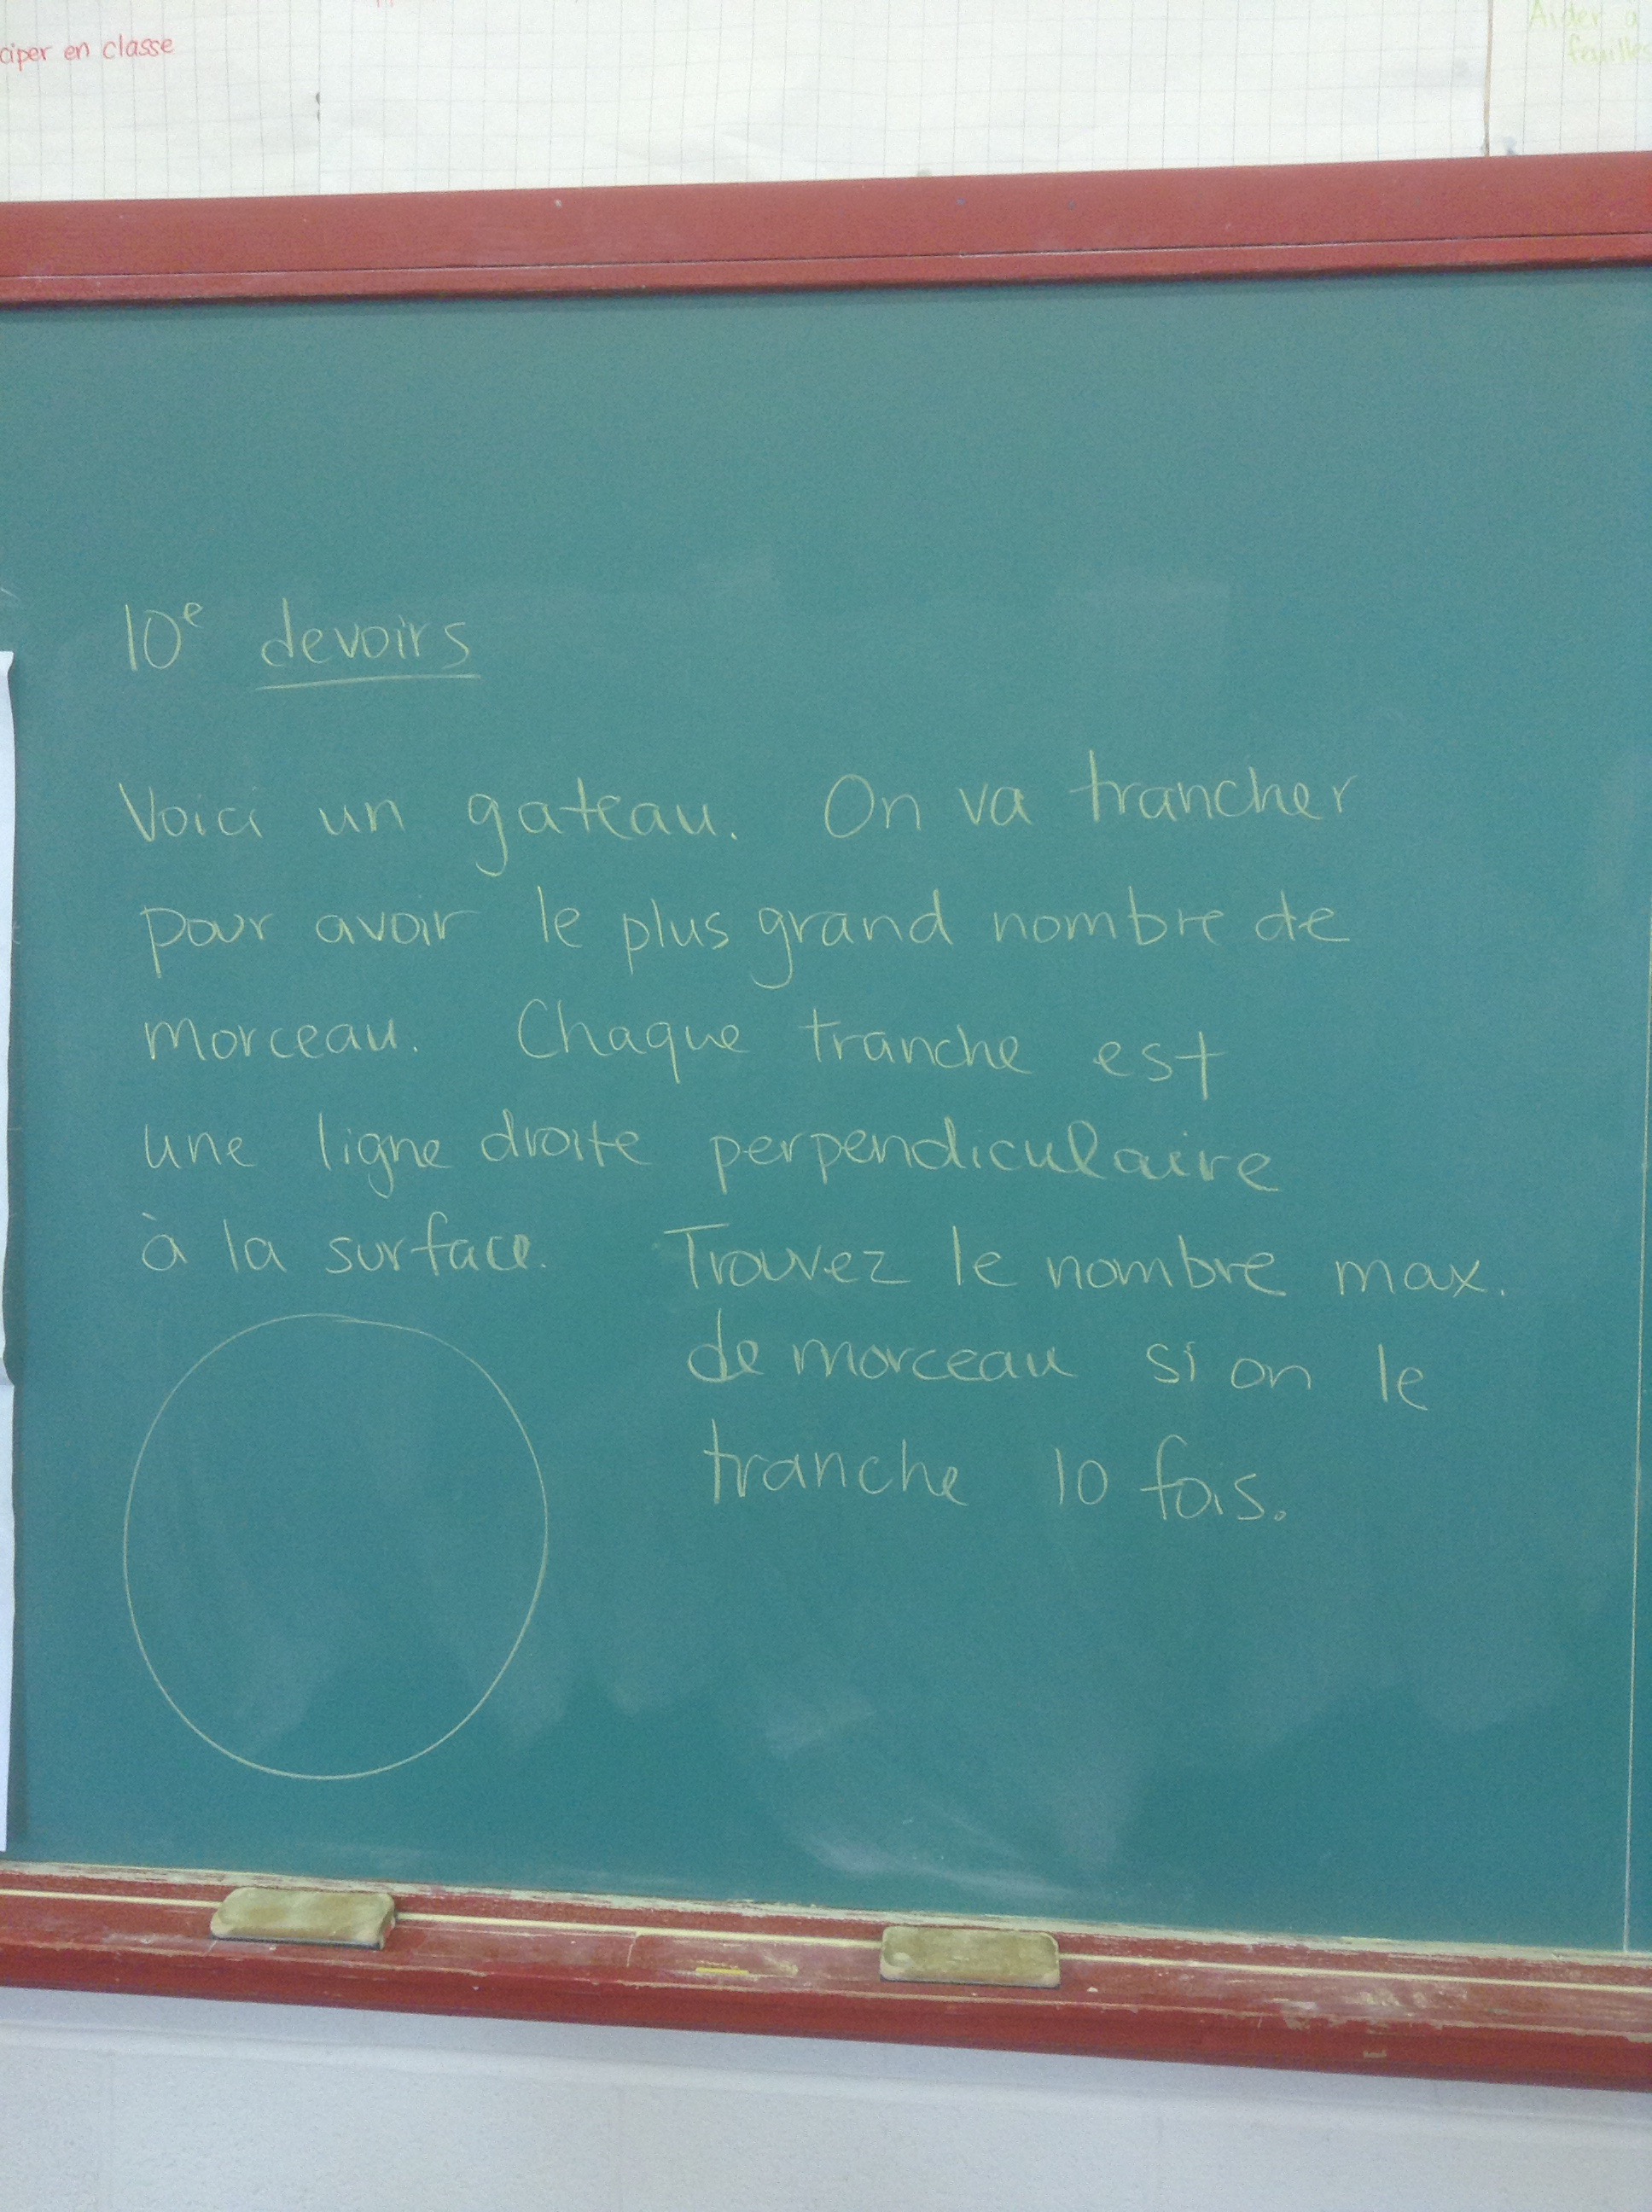 ciper en classe
Aider
feuilles
10e devoirs
Voici un gateau. On va trancher
pour avoir le plus grand nombre de
morceau. Chaque tranche est
une ligne droite perpendiculaire
à la surface. Trouvez le nombre max.
de morceau si on le
tranche 10 fois.